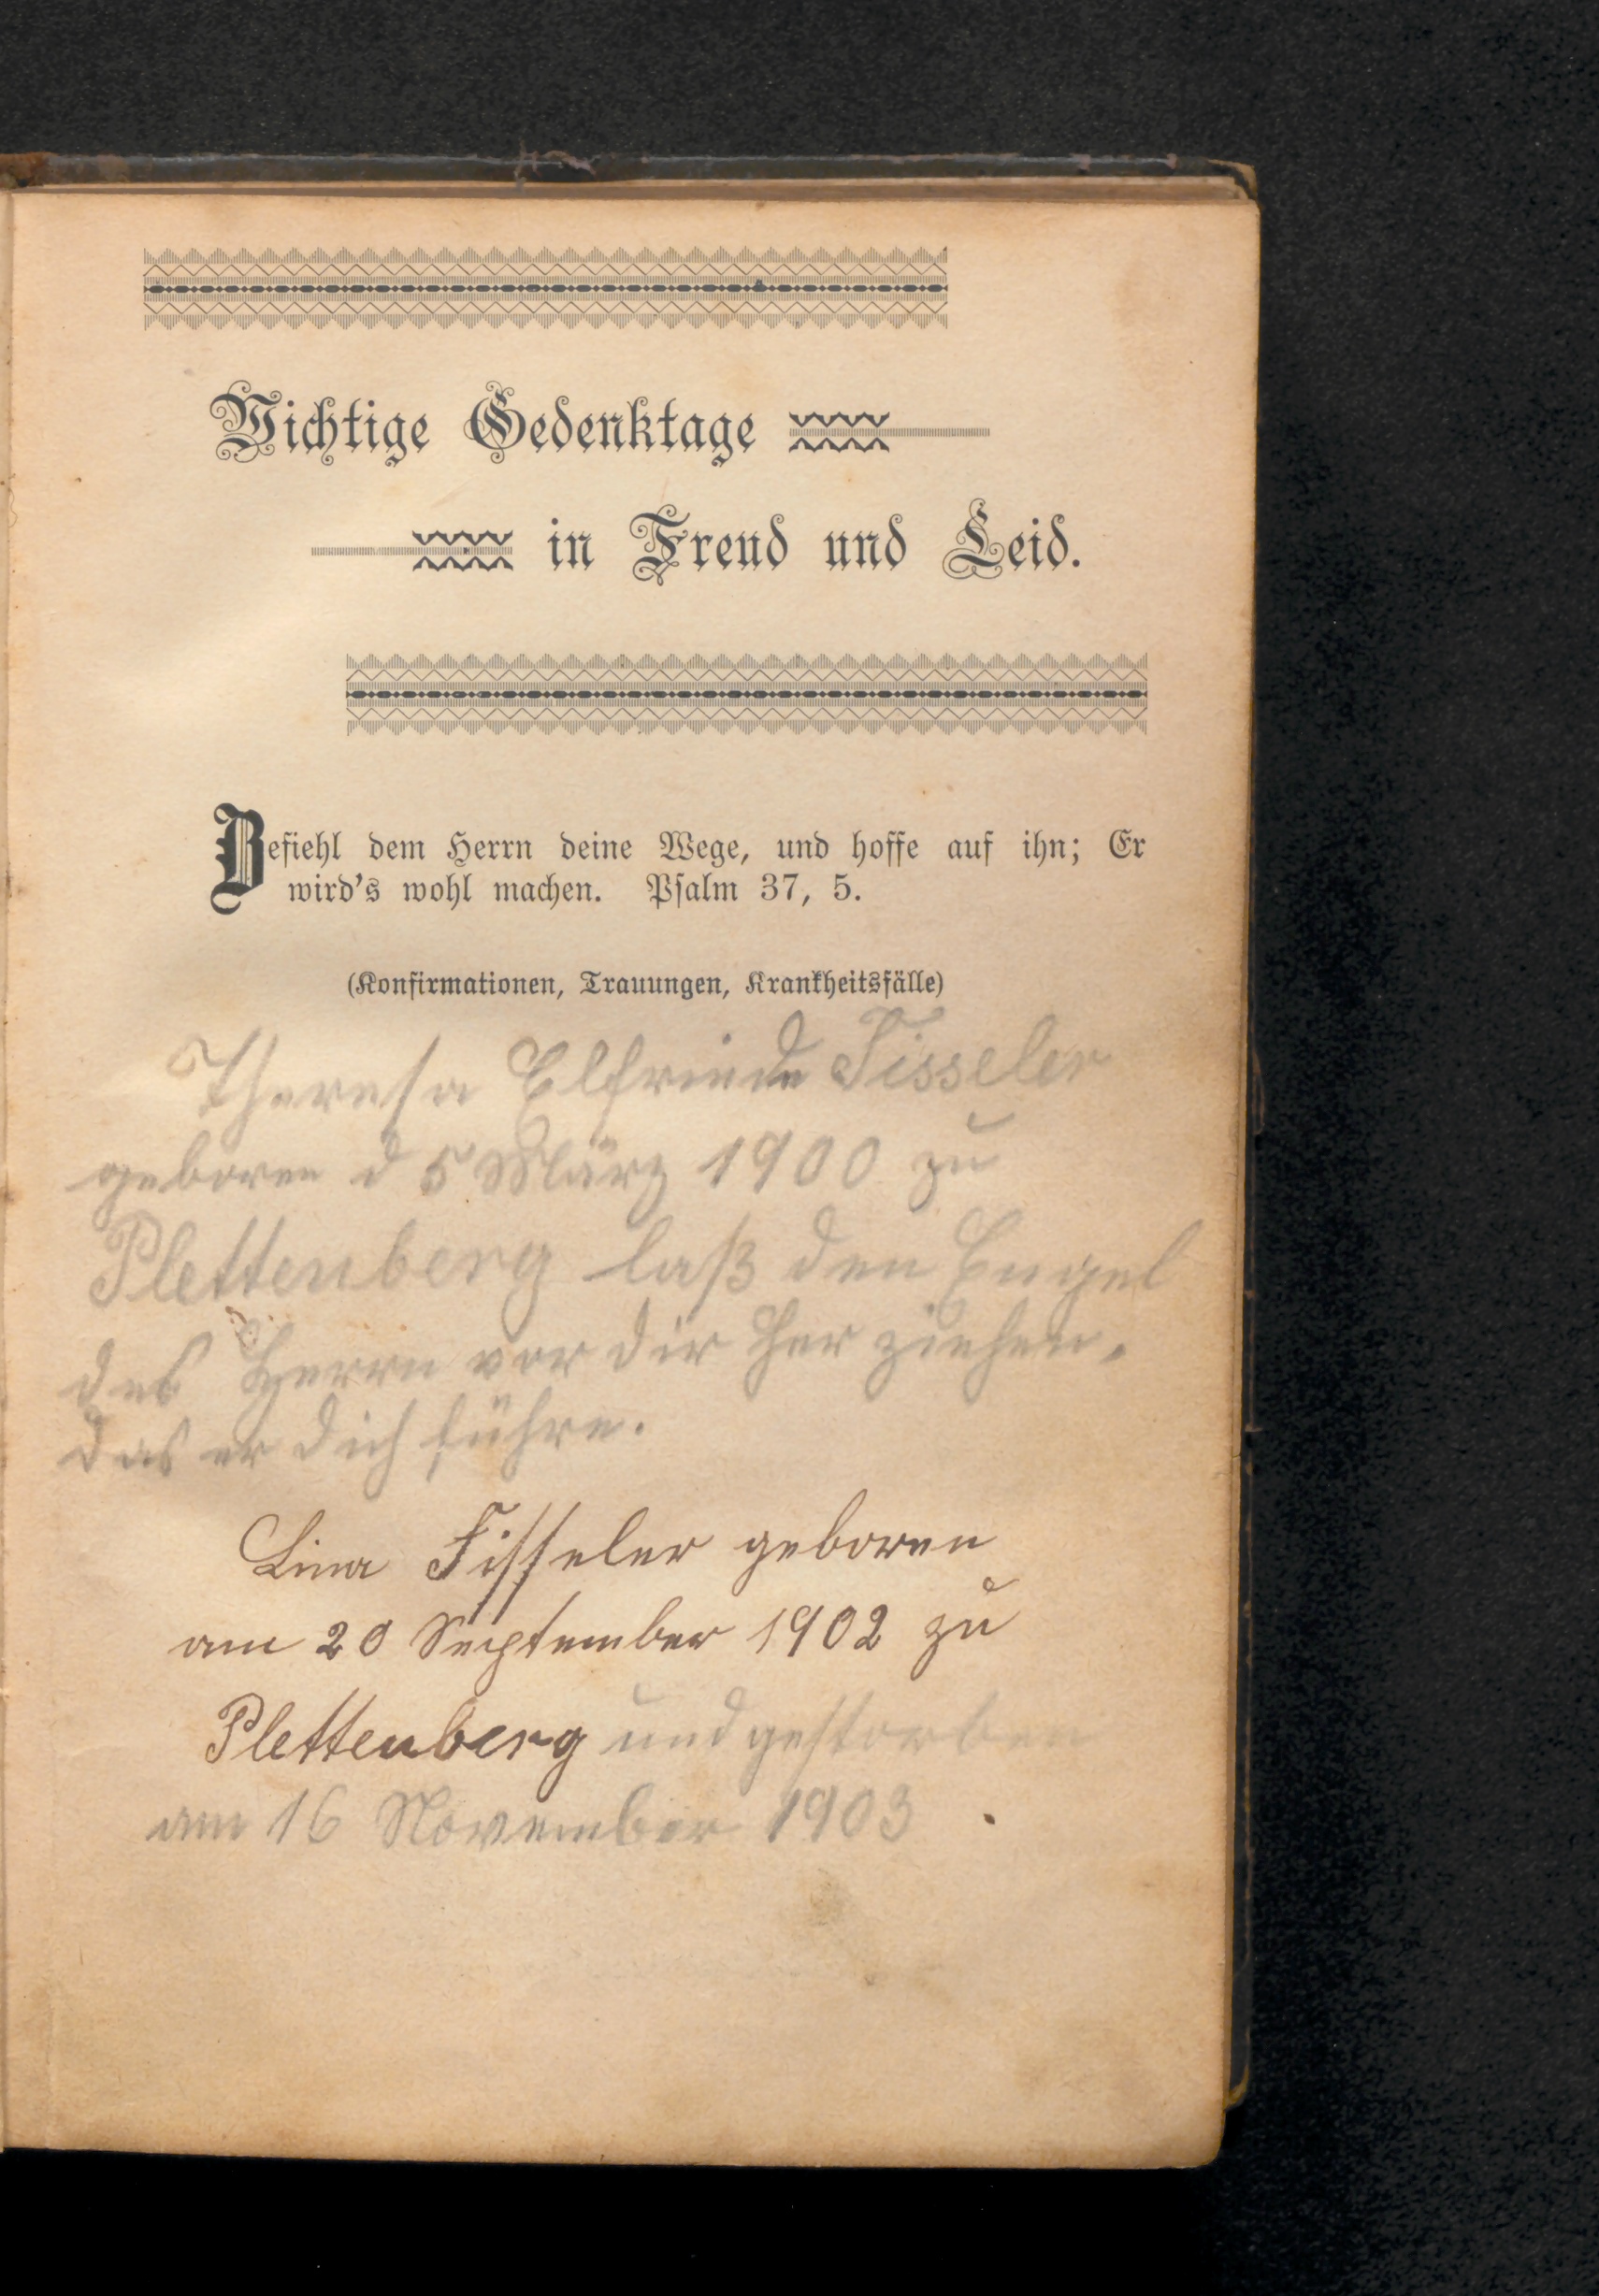 Wichtige Gedenktage
in Freud und Leid.
Befiehl dem Herrn deine Wege, und hoffe auf ihn; Er
wird's wohl machen. Psalm 37, 5.
(Konfirmationen, Trauungen, Krankheitsfälle)
Theresa Elfriede Fisseler
geboren d 5 März 1900 zu
Plettenberg laß den Engel
des Herrn vor dir her ziehen.
das er dich führe.
Lina Fisseler geboren
am 20 September 1902 zu
Plettenberg und gestorben
am 16 November 1903